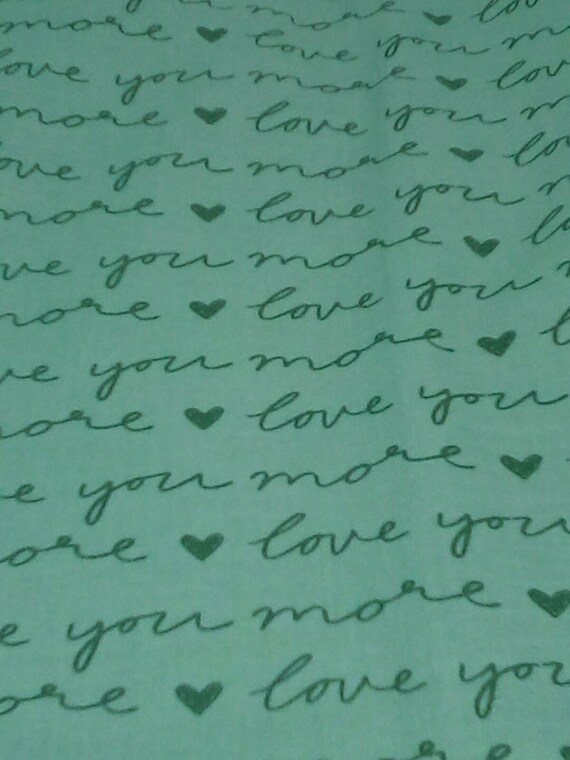 more ♥ love you m
love you more ♥ lov
more ♥ love you m
ove you more ♥ lo
more ♥ love you m
ve you more ♥ lo
more ♥ love you m
ve you more ♥ l
ore ♥ love you
e you more ♥
ore ♥ love you
e you more ♥
ore ♥ love you